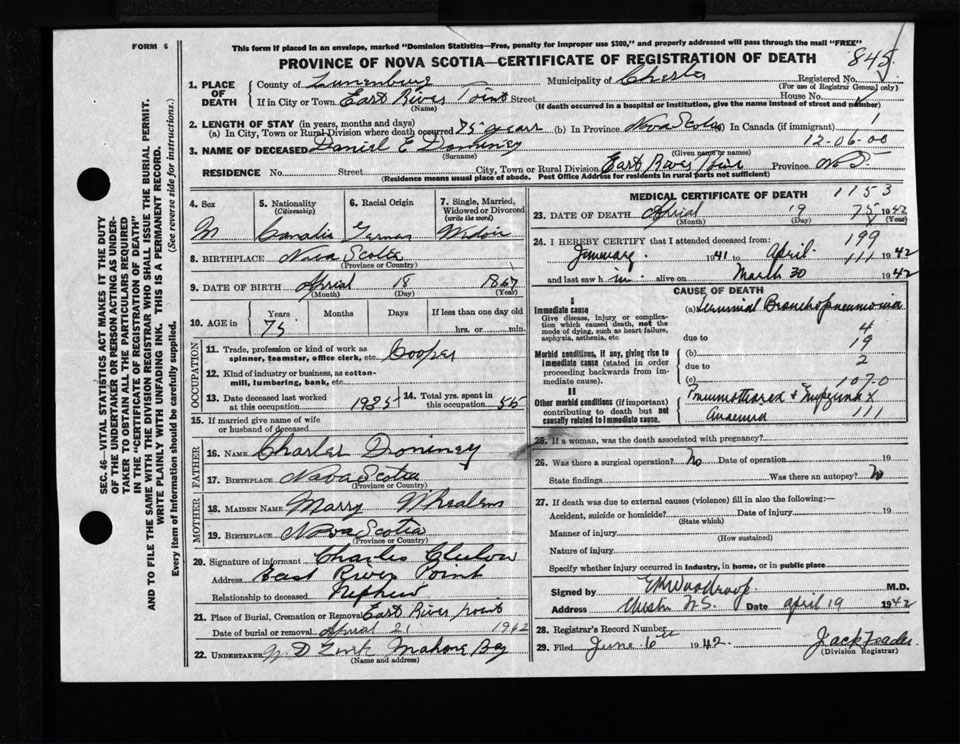 FORM 6
This form if placed in an envelope, marked "Dominion Statistics—Free, penalty for improper use $300," and properly addressed will pass through the mail "FREE"
PROVINCE OF NOVA SCOTIA—CERTIFICATE OF REGISTRATION OF DEATH
845
1. PLACE OF DEATH
County of Lunenburg Municipality of Chester Registered No.
(For use of Registrar General only)
If in City or Town East River Point Street House No.
(Name) (If death occurred in a hospital or institution, give the name instead of street and number)
2. LENGTH OF STAY (in years, months and days)
(a) In City, Town or Rural Division where death occurred 75 years (b) In Province Nova Scotia (c) In Canada (if immigrant)
12-06-00
3. NAME OF DECEASED Daniel E Dominey
(Surname) (Given name or names)
RESIDENCE No. Street City, Town or Rural Division East River Point Province N.S.
(Residence means usual place of abode. Post Office Address for residents in rural parts not sufficient)
4. Sex
M
5. Nationality
(Citizenship)
6. Racial Origin
German
7. Single, Married, Widowed or Divorced
(write the word)
8. BIRTHPLACE Nova Scotia
(Province or Country)
9. DATE OF BIRTH Aprial 18 1867
(Month) (Day) (Year)
10. AGE in
Years Months Days If less than one day old
75 hrs. or min.
OCCUPATION
11. Trade, profession or kind of work as spinner, teamster, office clerk, etc. Cooper
12. Kind of industry or business, as cotton-mill, lumbering, bank, etc.
13. Date deceased last worked at this occupation 1935
14. Total yrs. spent in this occupation 55
15. If married give name of wife or husband of deceased
FATHER
16. NAME Charles Dominey
17. BIRTHPLACE Nova Scotia
(Province or Country)
MOTHER
18. MAIDEN NAME Marry
19. BIRTHPLACE Nova Scotia
(Province or Country)
20. Signature of informant Charles
Address East River Point
Relationship to deceased Nephew
21. Place of Burial, Cremation or Removal East River point
Date of burial or removal Aprial 21 1942
22. UNDERTAKER Mahone Bay
(Name and address)
MEDICAL CERTIFICATE OF DEATH 1153
23. DATE OF DEATH Aprial 19 75 1942
(Month) (Day) (Year)
24. I HEREBY CERTIFY that I attended deceased from:
199
January 1941 to April 111 1942
and last saw him alive on March 30 1942
CAUSE OF DEATH
I
Immediate cause
Give disease, injury or complication which caused death, not the mode of dying, such as heart failure, asphyxia, asthenia, etc
(a) Terminal Bronchopneumonia
4
due to 19
Morbid conditions, if any, giving rise to immediate cause (stated in order proceeding backwards from immediate cause).
(b) 2
due to
(c) 107-0
II
Other morbid conditions (if important) contributing to death but not causally related to immediate cause.
111
25. If a woman, was the death associated with pregnancy?
26. Was there a surgical operation? No Date of operation 19
State findings Was there an autopsy? No
27. If death was due to external causes (violence) fill in also the following:—
Accident, suicide or homicide? Date of injury 19
(State which)
Manner of injury
(How sustained)
Nature of injury
Specify whether injury occurred in industry, in home, or in public place
Signed by M.D.
Address Chester N.S. Date april 19 1942
28. Registrar's Record Number
29. Filed June 6th 1942
(Division Registrar)
SEC. 46—VITAL STATISTICS ACT MAKES IT THE DUTY
OF THE UNDERTAKER OR PERSON ACTING AS UNDER-
TAKER TO OBTAIN ALL THE PARTICULARS REQUIRED
IN THE "CERTIFICATE OF REGISTRATION OF DEATH"
AND TO FILE THE SAME WITH THE DIVISION REGISTRAR WHO SHALL ISSUE THE BURIAL PERMIT.
WRITE PLAINLY WITH UNFADING INK. THIS IS A PERMANENT RECORD.
Every item of Information should be carefully supplied. (See reverse side for instructions.)